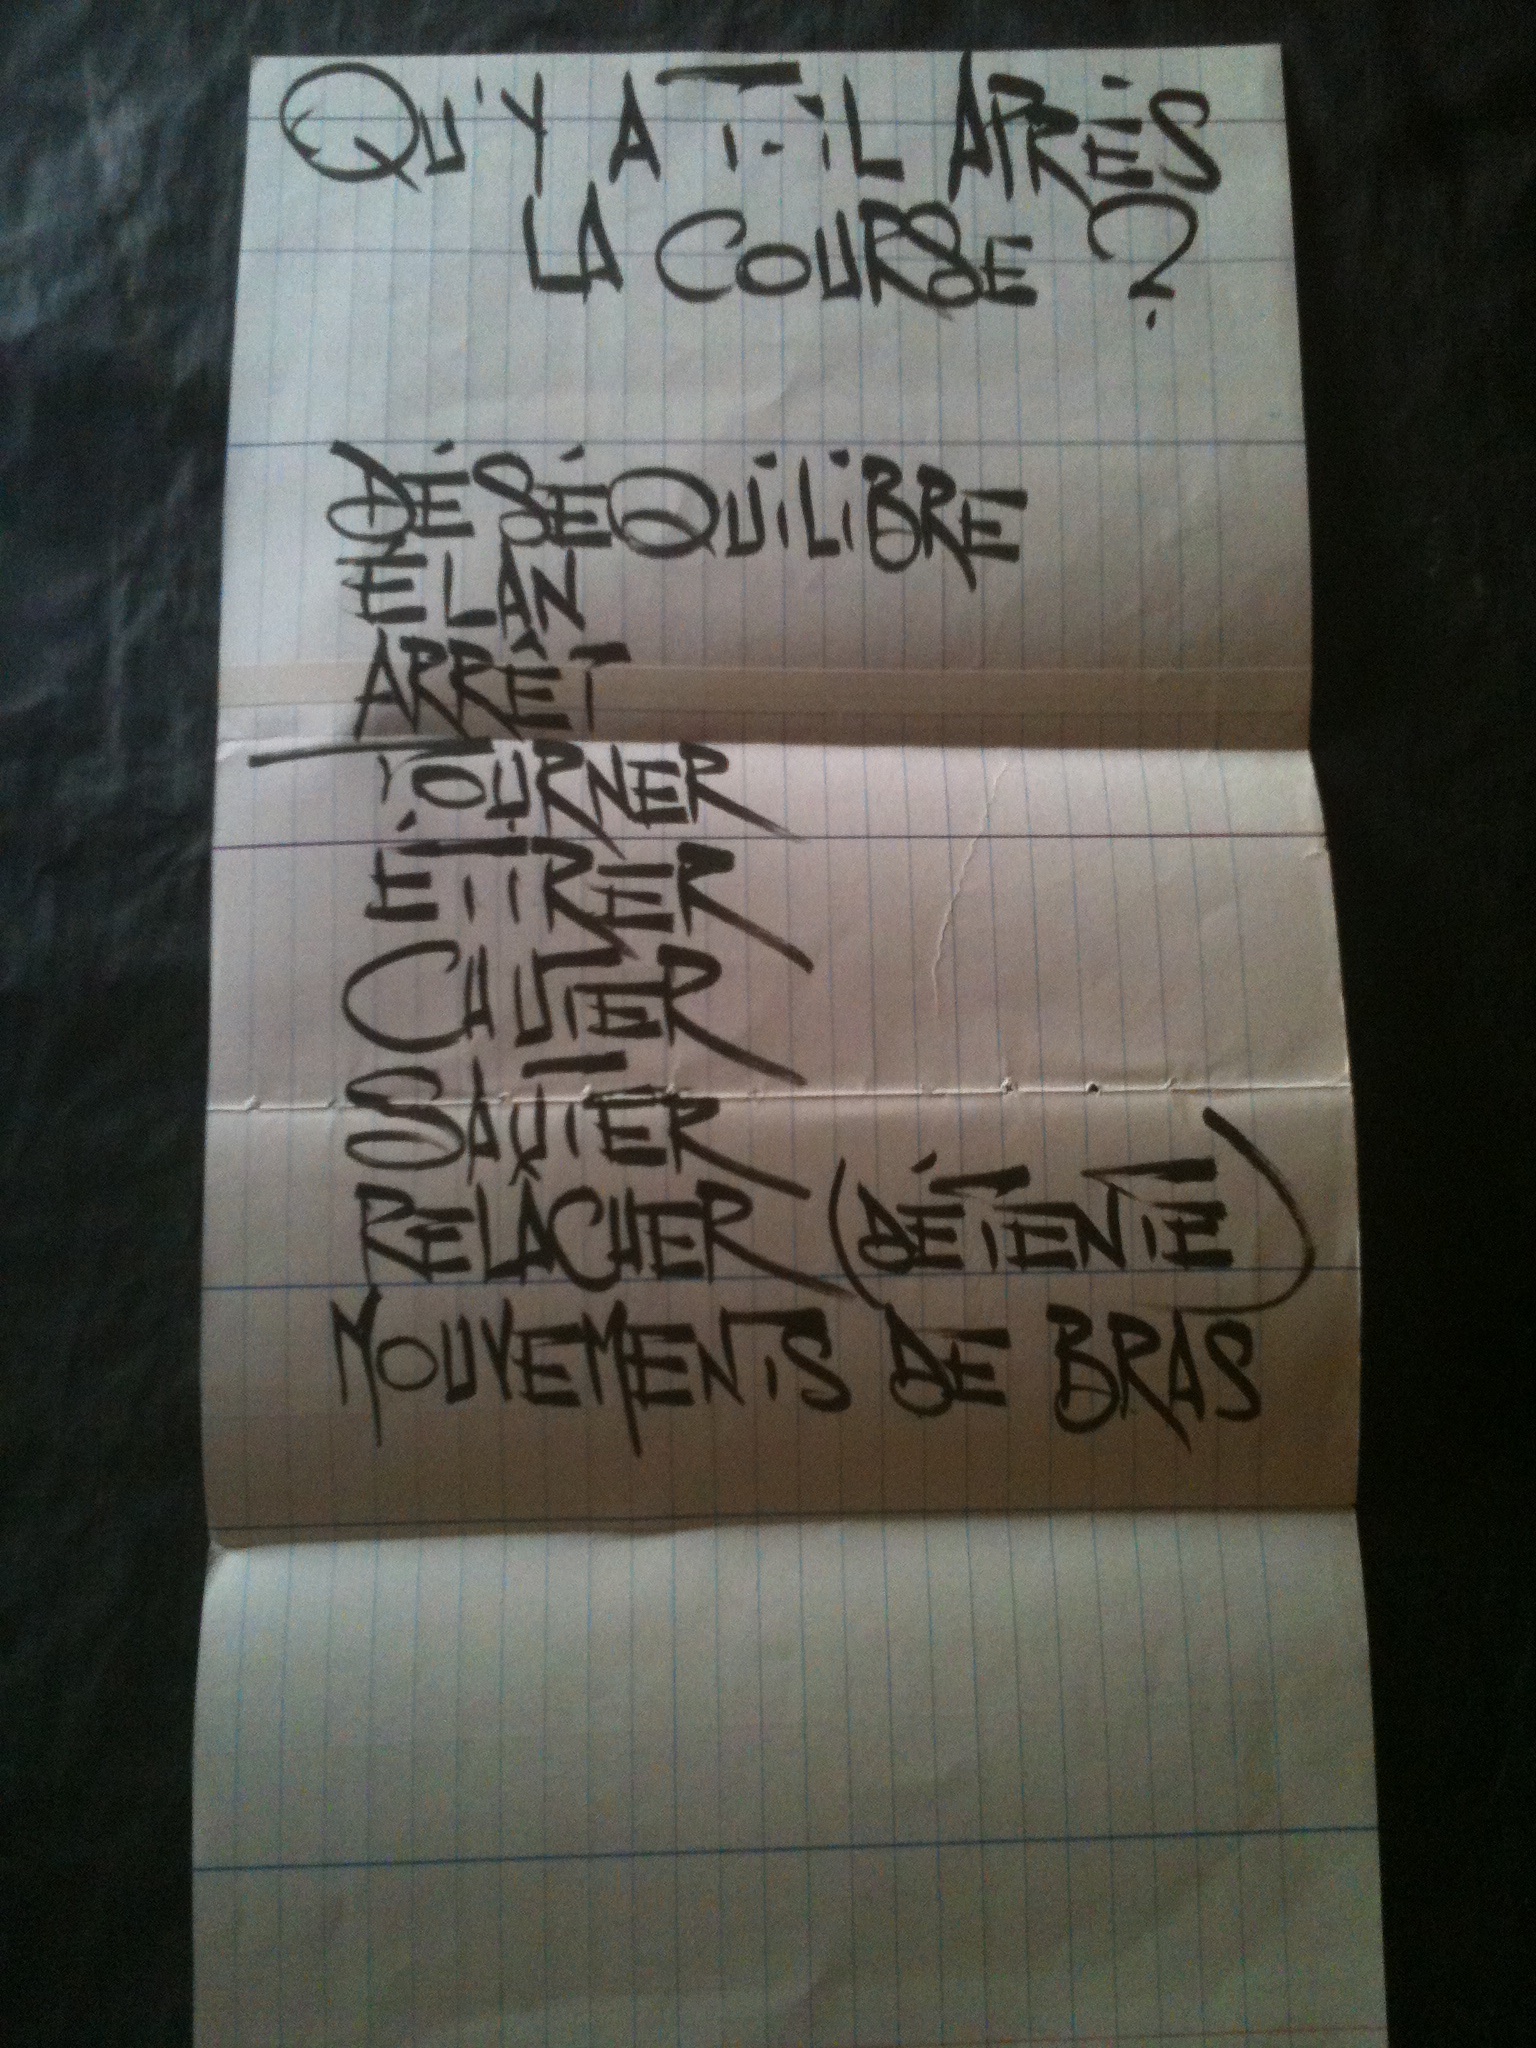 QU'Y A T-IL APRÈS
LA COURSE ?
DÉSÉQUILIBRE
ÉLAN
ARRÊT
TOURNER
ÉTIRER
CHUTER
SAUTER
RELÂCHER (DÉTENTE)
MOUVEMENTS DE BRAS